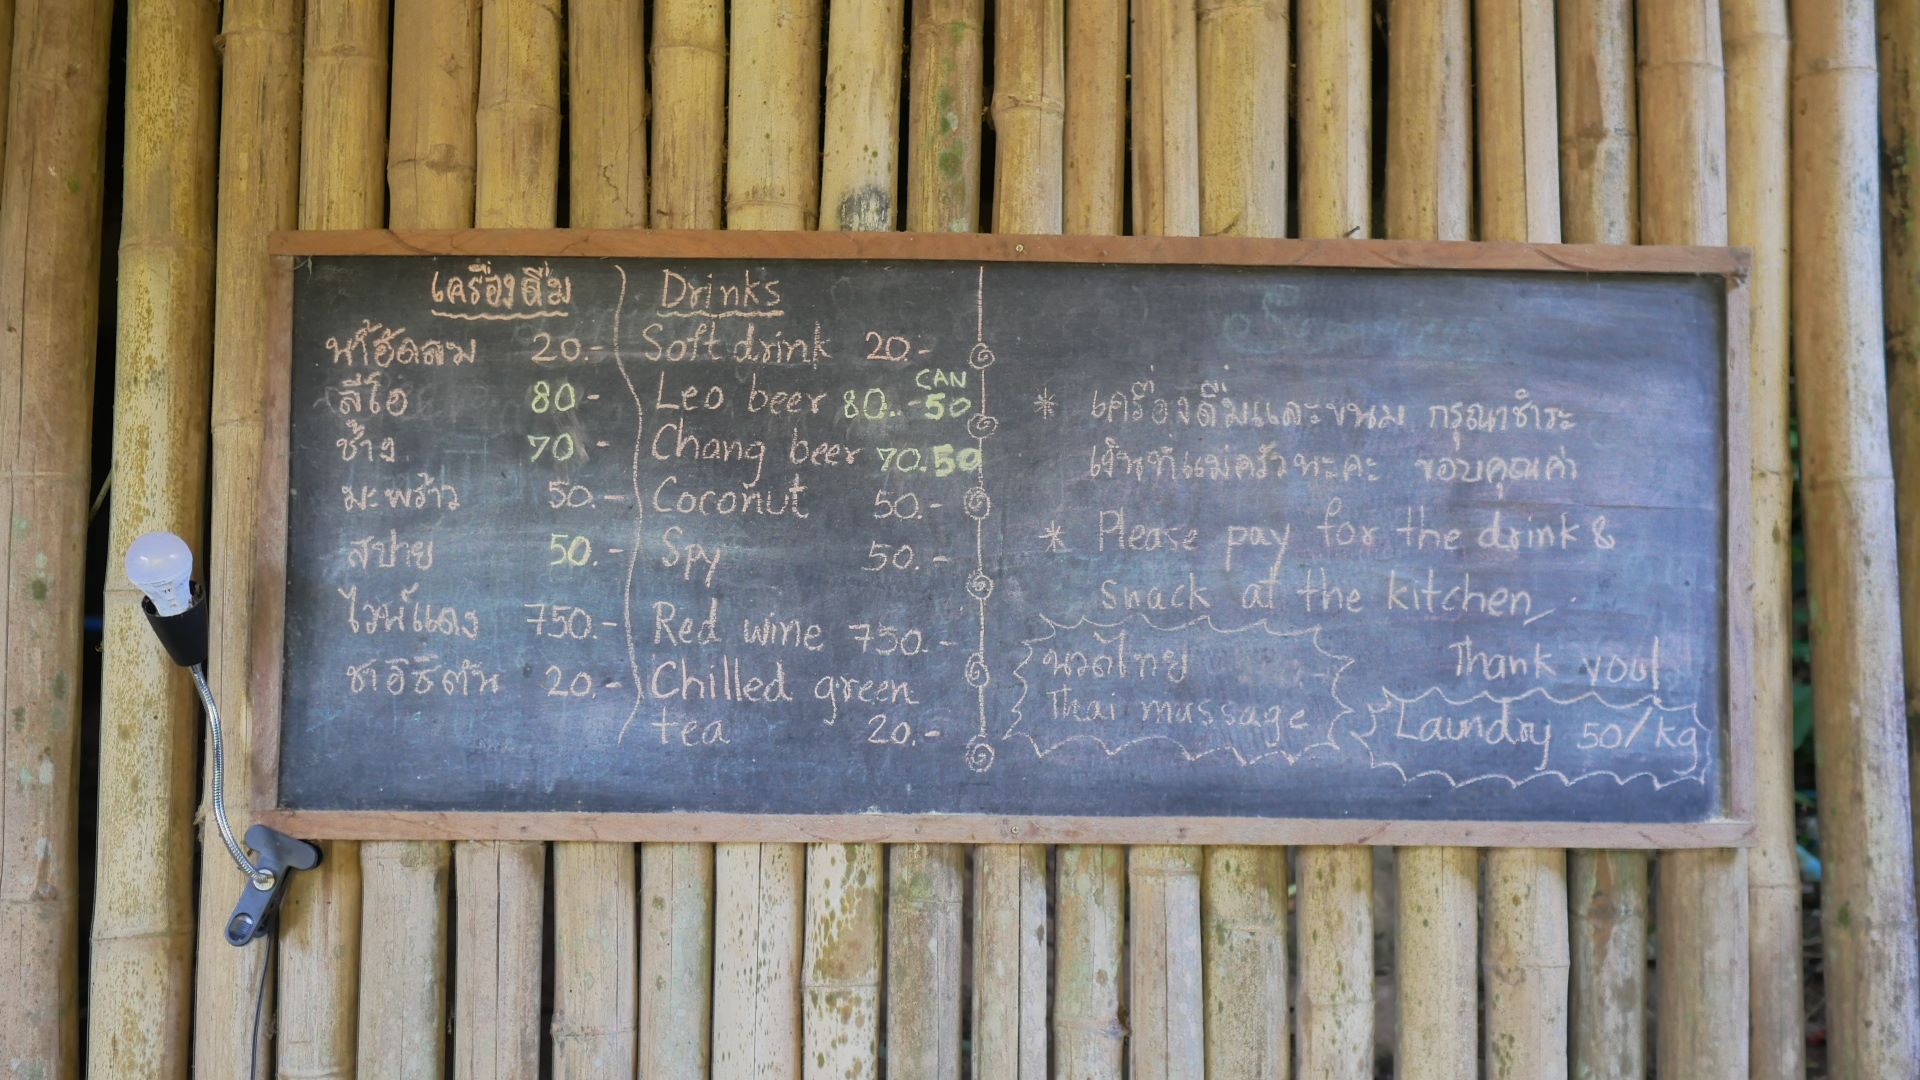 เครื่องดื่ม
น้ำอัดลม 20.-
ลีโอ 80-
ช้าง 70-
มะพร้าว 50.-
สปาย 50.-
ไวน์แดง 750.-
ชาอิชิตัน 20.-
Drinks
Soft drink 20.-
CAN
Leo beer 80.- -50
Chang beer 70.50
Coconut 50.-
Spy 50.-
Red wine 750.-
Chilled green
tea 20.-
* เครื่องดื่มและขนม กรุณาชำระ
เงินที่แม่ครัวนะคะ ขอบคุณค่า
* Please pay for the drink &
snack at the kitchen
Thank you!
นวดไทย
Thai massage
Laundry 50/kg